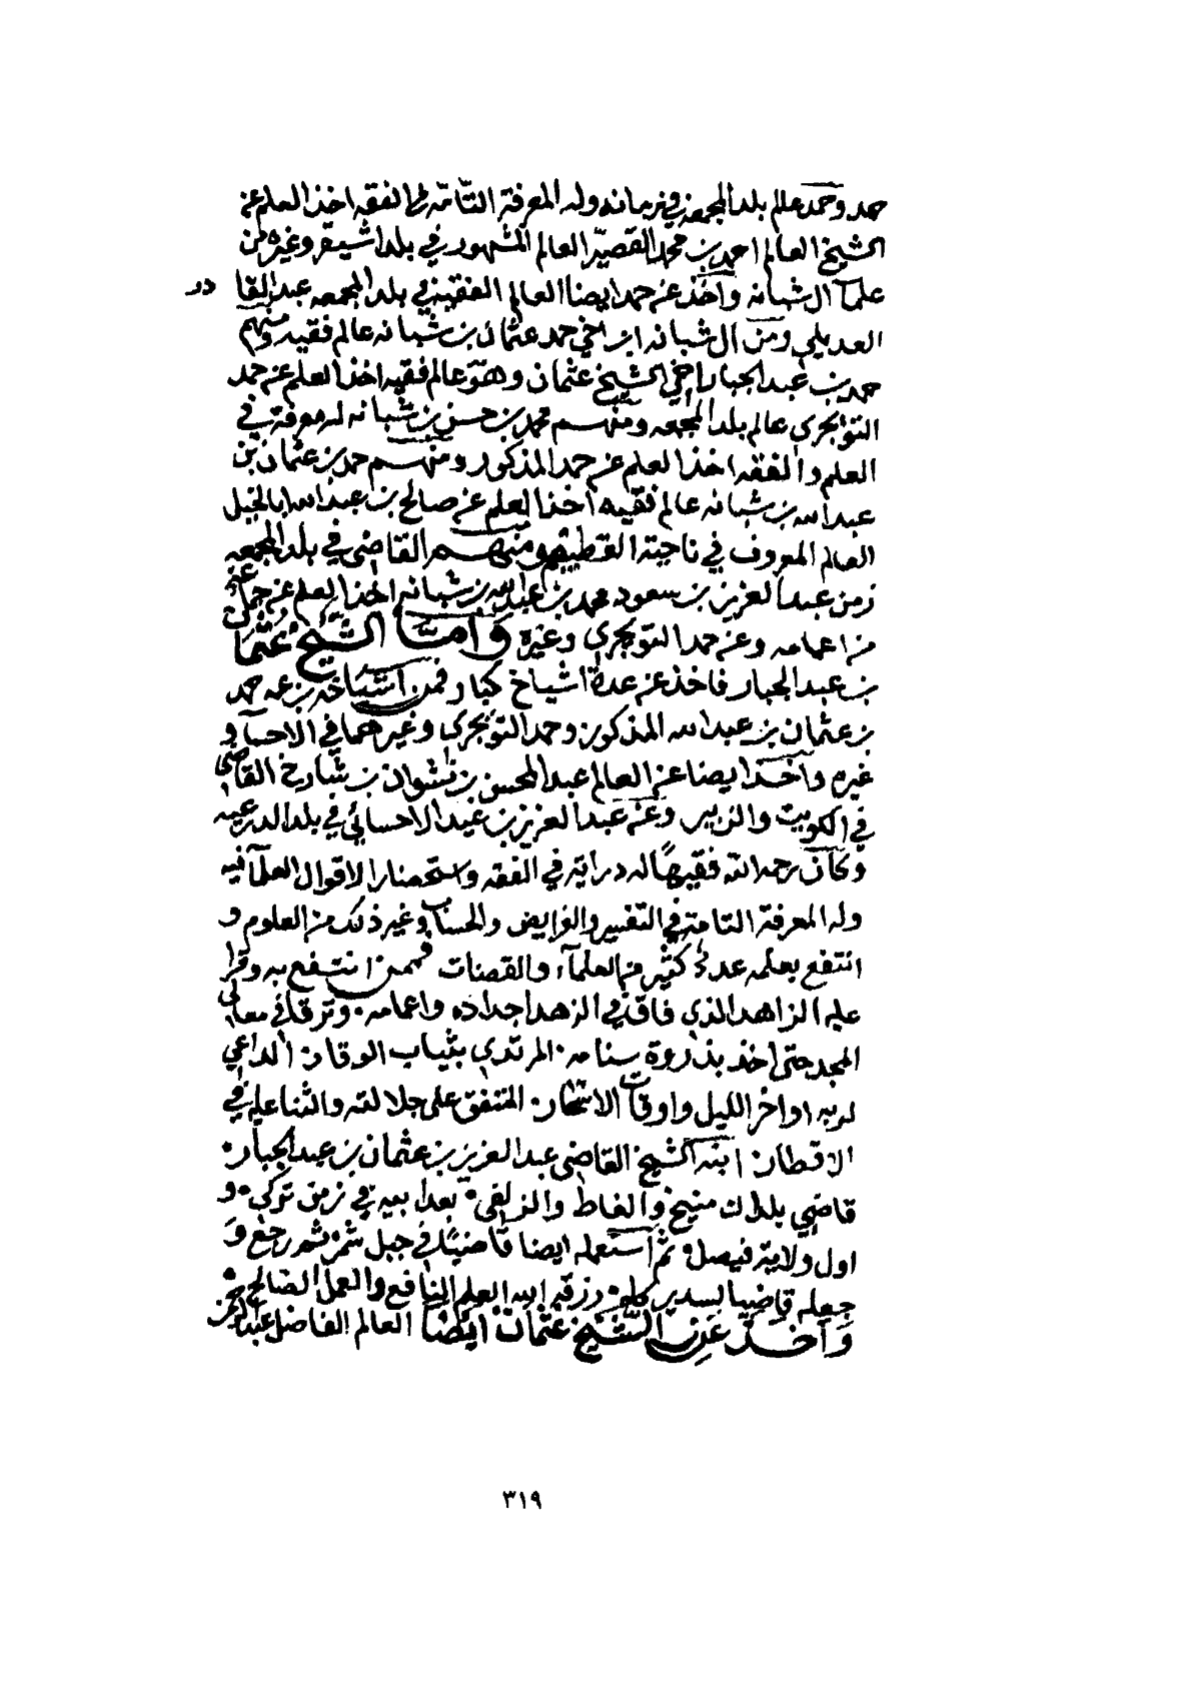 حمد وحمد عالم بلد المجمعه في زمانه وله المعرفة التامّه في الفقه اخذ العلم عن
الشيخ العالم احمد بن محمد القصيّر العالم المشهور في بلد اشيقر وغيره من
علمآ ال شبانه واخذ عن حمد ايضا العالم الفقيه في بلد المجمعه عبد القادر
العديلي ومن ال شبانه ابن اخي حمد عثمان بن شبانه عالم فقيه ومنهم
حمد بن عبد الجبار اخي الشيخ عثمان وهو عالم فقيه اخذ العلم عن حمد
التويجري عالم بلد المجمعه ومنهم محمد بن حسن بن شبانه له معرفة في
العلم والفقه اخذ العلم عن حمد المذكور ومنهم حمد بن عثمان بن
عبد الله بن شبانه عالم فقيه اخذ العلم عن صالح بن عبد الله ابا الخيل
العالم المعروف في ناحية القصيم ومنهم القاضي في بلد المجمعه
زمن عبد العزيز بن سعود محمد بن عبد الله بن شبانه اخذ العلم عن جماعة
من اعمامه وعن حمد التويجري وغيره وَامّا الشَّيخ عُثمان
بن عبد الجبار فاخذ عن عدة اشياخ كبار فمن اشياخه بن عمه حمد
بن عثمان بن عبد الله المذكور وحمد التويجري وغيرهما في الاحسآ و
غيره واخذ ايضا عن العالم عبد المحسن بن نشوان بن شارخ القاضي
في الكويت والزبير وعن عبد العزيز بن عيد الاحسائي في بلد الدرعيه
وكان رحمه الله فقيهًا له دراية في الفقه واستحضارا لاقوال العلمآ فيه
وله المعرفة التامة في التفسير والفرايض والحساب وغير ذلك من العلوم و
انتفع بعلمه عدد كثير من العلمآء والقضات فممن انتفع به وقرا
عليه الزاهد الذي فاق في الزهد اجداده واعمامه وترقا في معالي
المجد حتى اخذ بذروة سنامه المرتدي بثياب الوقار الداعي
لربه اواخر الليل واوقات الاسحار المتفق على جلالته والثنا عليه في
الاقطار ابنه الشيخ القاضي عبد العزيز بن عثمان بن عبد الجبار
قاضي بلدان منيخ والغاط والزلفي بعد ابيه في زمن تركي و
اول ولاية فيصل ثم استعمله ايضا قاضيًا في جبل شمر ثم رجع وَ
جعله قاضيا لسدير كله رزقه الله العلم النافع والعمل الصالح
وَاخذ عَن الشَّيخ عثمان ايضًا العالم الفاضل عبد الرحمن
٣١٩